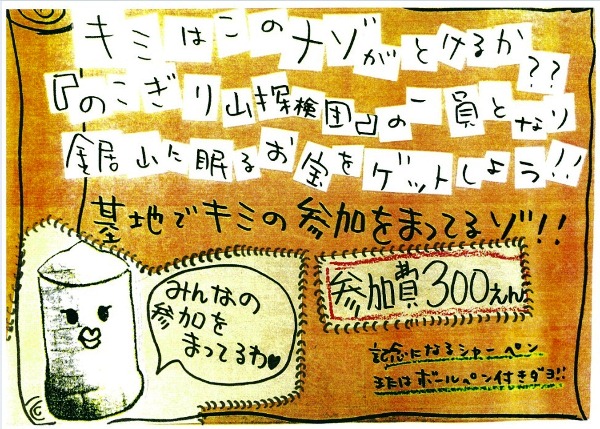 キミはこのナゾがとけるか??
『のこぎり山探検団』の一員となり
鋸山に眠るお宝をゲットしよう!!
基地でキミの参加をまってるゾ!!
みんなの
参加を
まってるわ♥
参加費300えん
記念になるシャーペン
またはボールペン付きダヨ!!